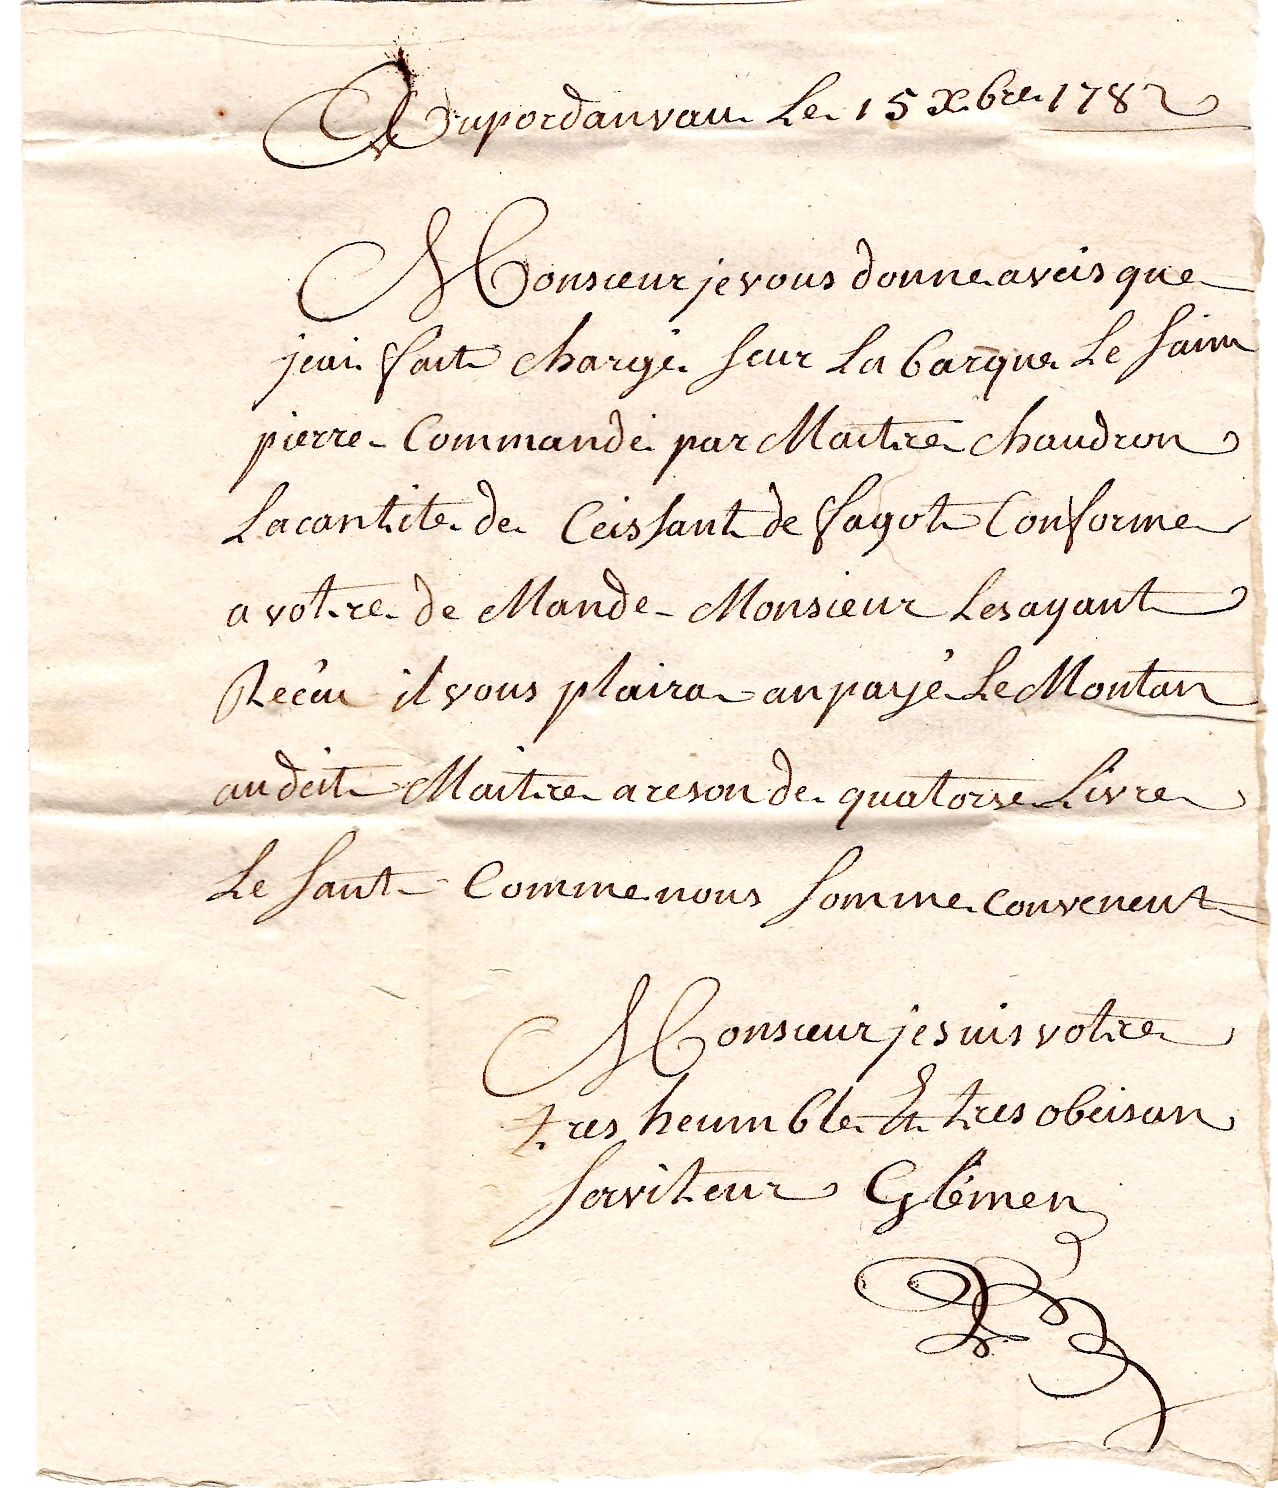 Dupordanvau Le 15 Xbre 1782
Monsieur je vous donne aveis que
jeai fait chargé seur La barque Le Sain
pierre Commandé par Maitre chaudron
La cantite de Ceissant de fagot Conforme
a votre de Mande Monsieur Les ayant
Recàu il vous plaira an payé Le Montan
au deit Maitre a reson de quatorse Livre
Le Sant Comme nous Somme conveneut
Monsieur je suis votre
tres heumble Et tres obeisan
Serviteur Glémen